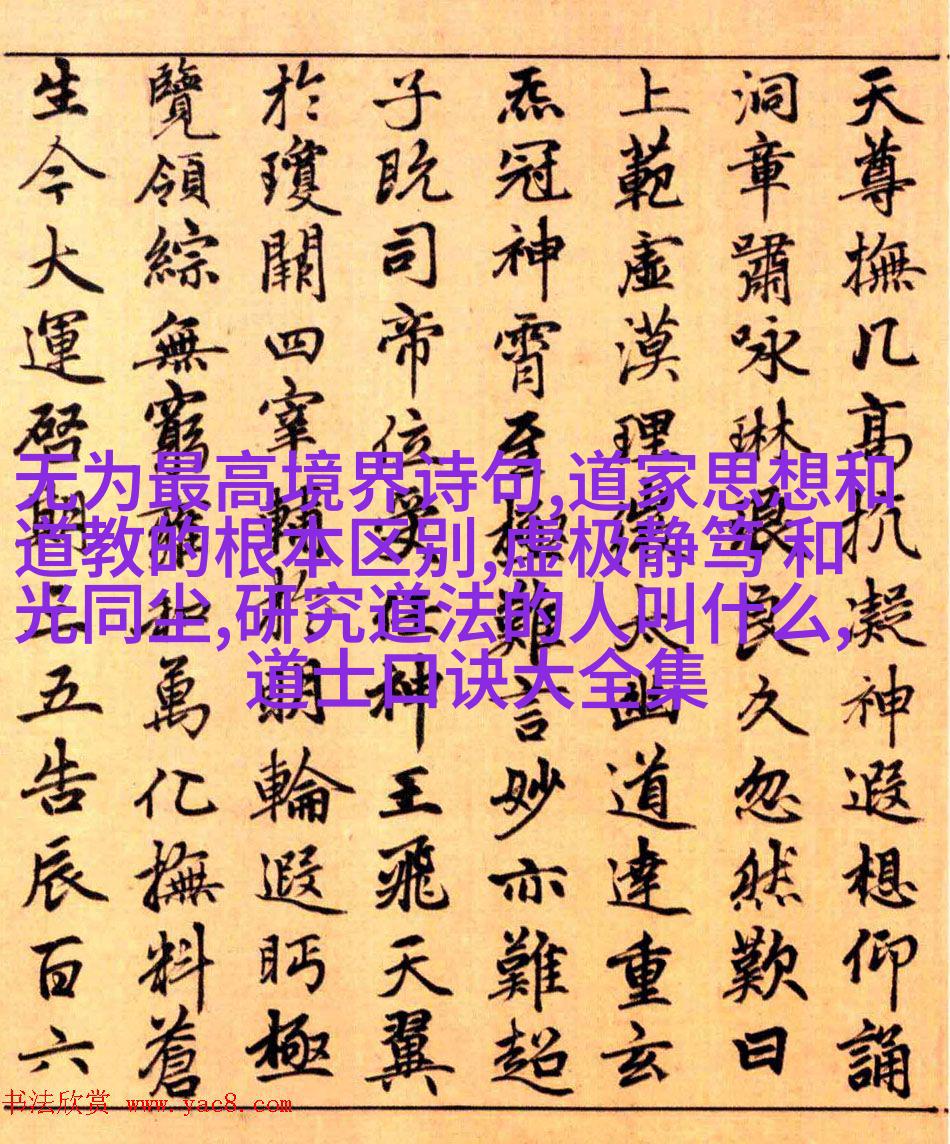 天尊撫几高抗凝神遐想仰誦
洞章嘯咏琳琅良久忽然歎曰
上範虛漠理微太幽道達重玄
炁冠神霄至極難言妙亦難超
子既司帝位受任神王飛天翼
於瓊闕四宰輔於朗輪遐眄極
覽領綜無窮和萬化撫料蒼
生今大運啓期三五告辰百六
无为最高境界诗句,道家思想和
道教的根本区别,虚极静笃 和
光同尘,研究道法的人叫什么,
道士口诀大全集
书法欣赏 www.yac8.com